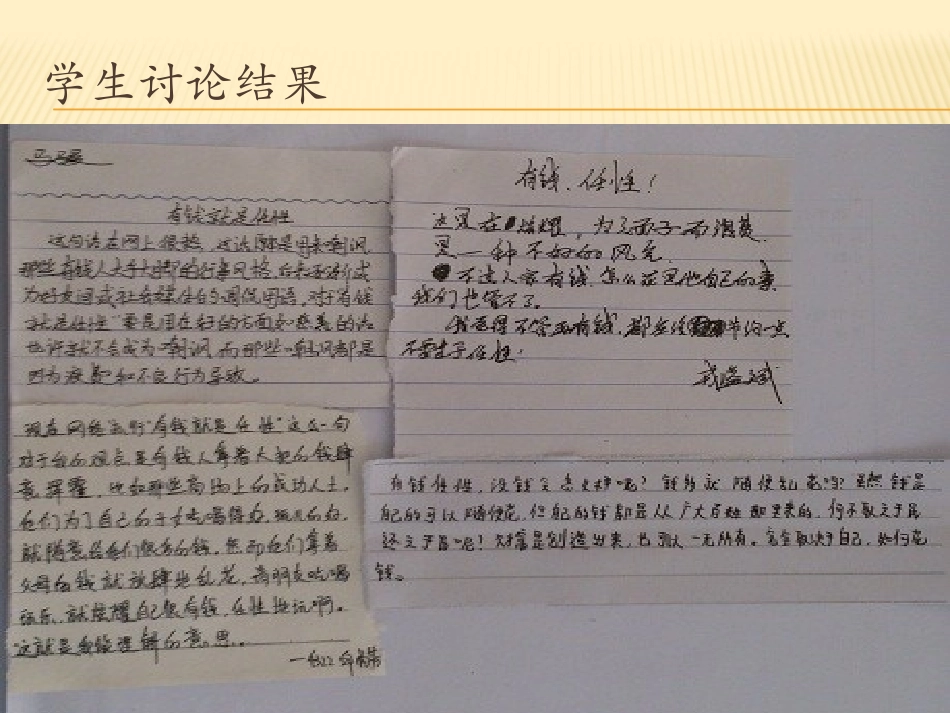 学生讨论结果
有钱就是任性
这句话在网上很热，这话原是用来嘲讽
那些有钱人大手大脚的行事风格，后来逐渐成
为好友间或社会群体的调侃用语，对于"有钱
就是任性"要是用在好的方面如慈善的话
也许就不会成为嘲讽，而那些嘲讽都是
因为浪费和不良行为导致。
有钱、任性！
这是在炫耀，为了面子而浪费，
是一种不好的风气
不过人家有钱，怎么花是他自己的事
我们也管不了。
我觉得不管多有钱，都应该节约一点
不要太于任性！
现在网络流行"有钱就是任性"这么一句
对于我的观点是有钱人拿着大把的钱肆
意挥霍，比如那些商场上的成功人士，
他们为了自己的子女吃喝得好，玩儿的好，
就随意给他们很多的钱，然而他们拿着
父母的钱就放肆地乱花，请朋友吃喝
玩乐，就炫耀自己很有钱，任性地玩啊。
这就是我能理解的意思。
有钱任性，没钱又怎么样呢？钱多就随便乱花吗？虽然钱是
自己的可以随便花，但自己的钱都是从广大百姓那里来的，何不取之于民
还之于民呢！财富是创造出来，也引人一无所有。完全取决于自己，如何花
钱。